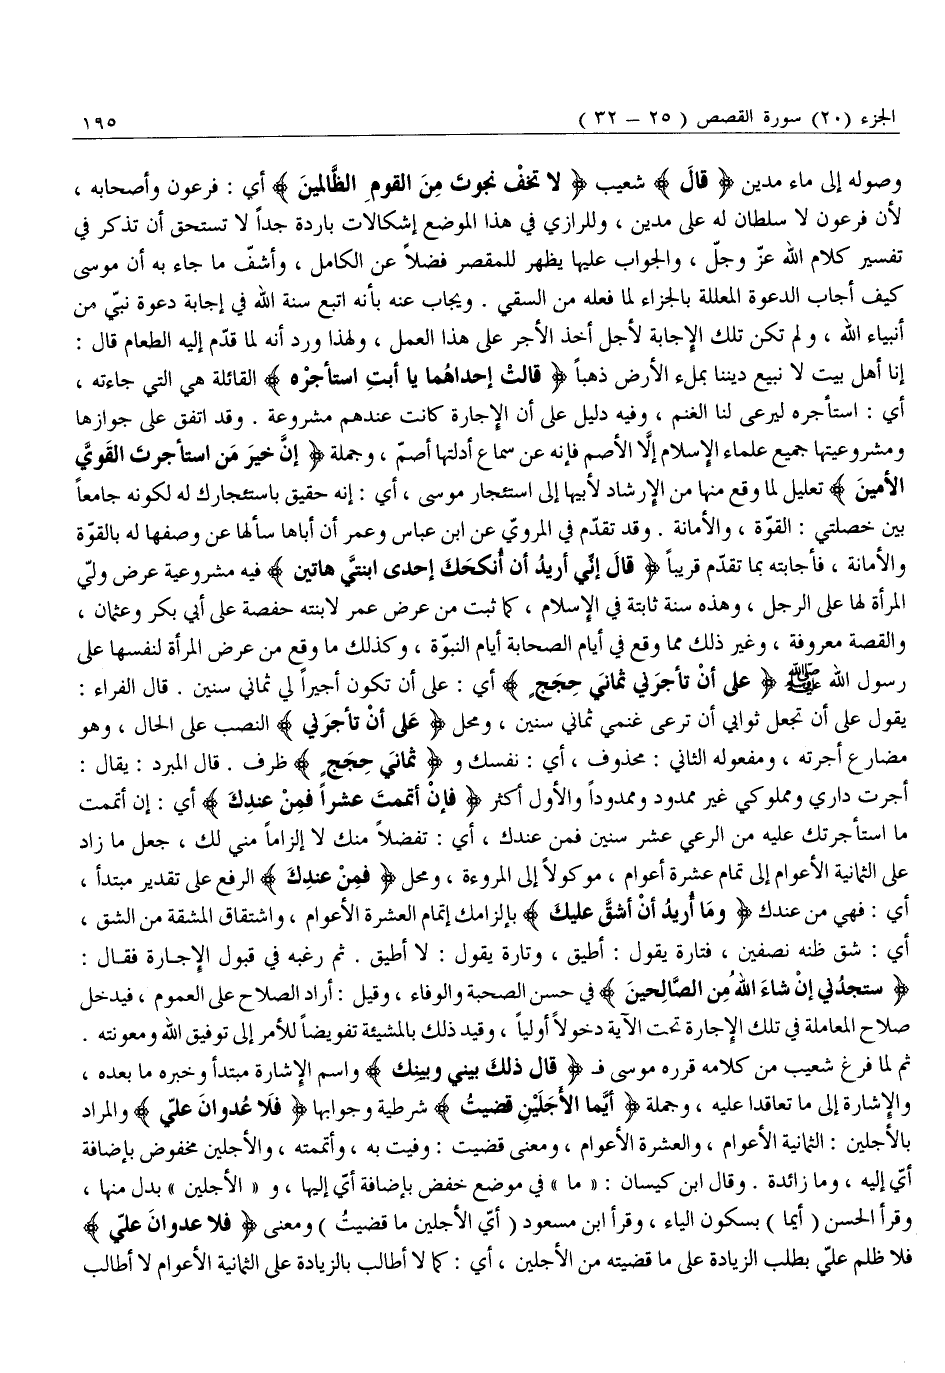 الجزء (٢٠) سورة القصص ( ٢٥ – ٣٢ ) ١٩٥
وصوله إلى ماء مدين ﴿ قالَ ﴾ شعيب ﴿ لا تخفْ نجوتَ مِنَ القومِ الظَّالمينَ ﴾ أي : فرعون وأصحابه ،
لأن فرعون لا سلطان له على مدين ، وللرازي في هذا الموضع إشكالات باردة جداً لا تستحق أن تذكر في
تفسير كلام الله عزّ وجلّ ، والجواب عليها يظهر للمقصر فضلاً عن الكامل ، وأشفّ ما جاء به أن موسى
كيف أجاب الدعوة المعللة بالجزاء لما فعله من السقي . ويجاب عنه بأنه اتبع سنة الله في إجابة دعوة نبيّ من
أنبياء الله ، ولم تكن تلك الإجابة لأجل أخذ الأجر على هذا العمل ، ولهذا ورد أنه لما قدّم إليه الطعام قال :
إنا أهل بيت لا نبيع ديننا بملء الأرض ذهباً ﴿ قالتْ إحداهُما يا أبتِ استأجرْه ﴾ القائلة هي التي جاءته ،
أي : استأجره ليرعى لنا الغنم ، وفيه دليل على أن الإجارة كانت عندهم مشروعة . وقد اتفق على جوازها
ومشروعيتها جميع علماء الإسلام إلَّا الأصم فإنه عن سماع أدلتها أصمّ ، وجملة ﴿ إنَّ خيرَ مَن استأجرتَ القَويَّ
الأمينَ ﴾ تعليل لما وقع منها من الإرشاد لأبيها إلى استئجار موسى ، أي : إنه حقيق باستئجارك له لكونه جامعاً
بين خصلتي : القوّة ، والأمانة . وقد تقدّم في المرويّ عن ابن عباس وعمر أن أباها سألها عن وصفها له بالقوّة
والأمانة ، فأجابته بما تقدّم قريباً ﴿ قالَ إنّي أريدُ أن أُنكحَكَ إحدى ابنتيَّ هاتين ﴾ فيه مشروعية عرض وليّ
المرأة لها على الرجل ، وهذه سنة ثابتة في الإسلام ، كما ثبت من عرض عمر لابنته حفصة على أبي بكر وعثمان ،
والقصة معروفة ، وغير ذلك مما وقع في أيام الصحابة أيام النبوّة ، وكذلك ما وقع من عرض المرأة لنفسها على
رسول الله ﷺ ﴿ على أنْ تأجرَني ثمانيَ حِجَجٍ ﴾ أي : على أن تكون أجيراً لي ثماني سنين . قال الفراء :
يقول على أن تجعل ثوابي أن ترعى غنمي ثماني سنين ، ومحل ﴿ عَلى أنْ تأجرَني ﴾ النصب على الحال ، وهو
مضارع أجرته ، ومفعوله الثاني : محذوف ، أي : نفسك و ﴿ ثمانيَ حِجَجٍ ﴾ ظرف . قال المبرد : يقال :
أجرت داري ومملوكي غير ممدود وممدوداً والأول أكثر ﴿ فإنْ أتممتَ عشراً فمِنْ عندِكَ ﴾ أي : إن أتممت
ما استأجرتك عليه من الرعي عشر سنين فمن عندك ، أي : تفضلاً منك لا إلزاماً مني لك ، جعل ما زاد
على الثمانية الأعوام إلى تمام عشرة أعوام ، موكولاً إلى المروءة ، ومحل ﴿ فمِنْ عندِكَ ﴾ الرفع على تقدير مبتدأ ،
أي : فهي من عندك ﴿ ومَا أُريدُ أنْ أشقَّ عليكَ ﴾ بإلزامك إتمام العشرة الأعوام ، واشتقاق المشقة من الشق ،
أي : شق ظنه نصفين ، فتارة يقول : أطيق ، وتارة يقول : لا أطيق . ثم رغبه في قبول الإجارة فقال :
﴿ ستجدُني إنْ شاءَ اللهُ مِن الصَّالحينَ ﴾ في حسن الصحبة والوفاء ، وقيل : أراد الصلاح على العموم ، فيدخل
صلاح المعاملة في تلك الإجارة تحت الآية دخولاً أولياً ، وقيد ذلك بالمشيئة تفويضاً للأمر إلى توفيق الله ومعونته .
ثم لما فرغ شعيب من كلامه قرره موسى فـ ﴿ قالَ ذلكَ بيني وبينك ﴾ واسم الإشارة مبتدأ وخبره ما بعده ،
والإشارة إلى ما تعاقدا عليه ، وجملة ﴿ أيَّما الأَجَلَيْنِ قضيتُ ﴾ شرطية وجوابها ﴿ فَلا عُدوانَ عليّ ﴾ والمراد
بالأجلين : الثمانية الأعوام ، والعشرة الأعوام ، ومعنى قضيت : وفيت به ، وأتممته ، والأجلين مخفوض بإضافة
أيّ إليه ، وما زائدة . وقال ابن كيسان : « ما » في موضع خفض بإضافة أيّ إليها ، و « الأجلين » بدل منها ،
وقرأ الحسن ( أيما ) بسكون الياء ، وقرأ ابن مسعود ( أيّ الأجلين ما قضيتُ ) ومعنى ﴿ فلا عدوانَ عليّ ﴾
فلا ظلم عليّ بطلب الزيادة على ما قضيته من الأجلين ، أي : كما لا أطالب بالزيادة على الثمانية الأعوام لا أطالب